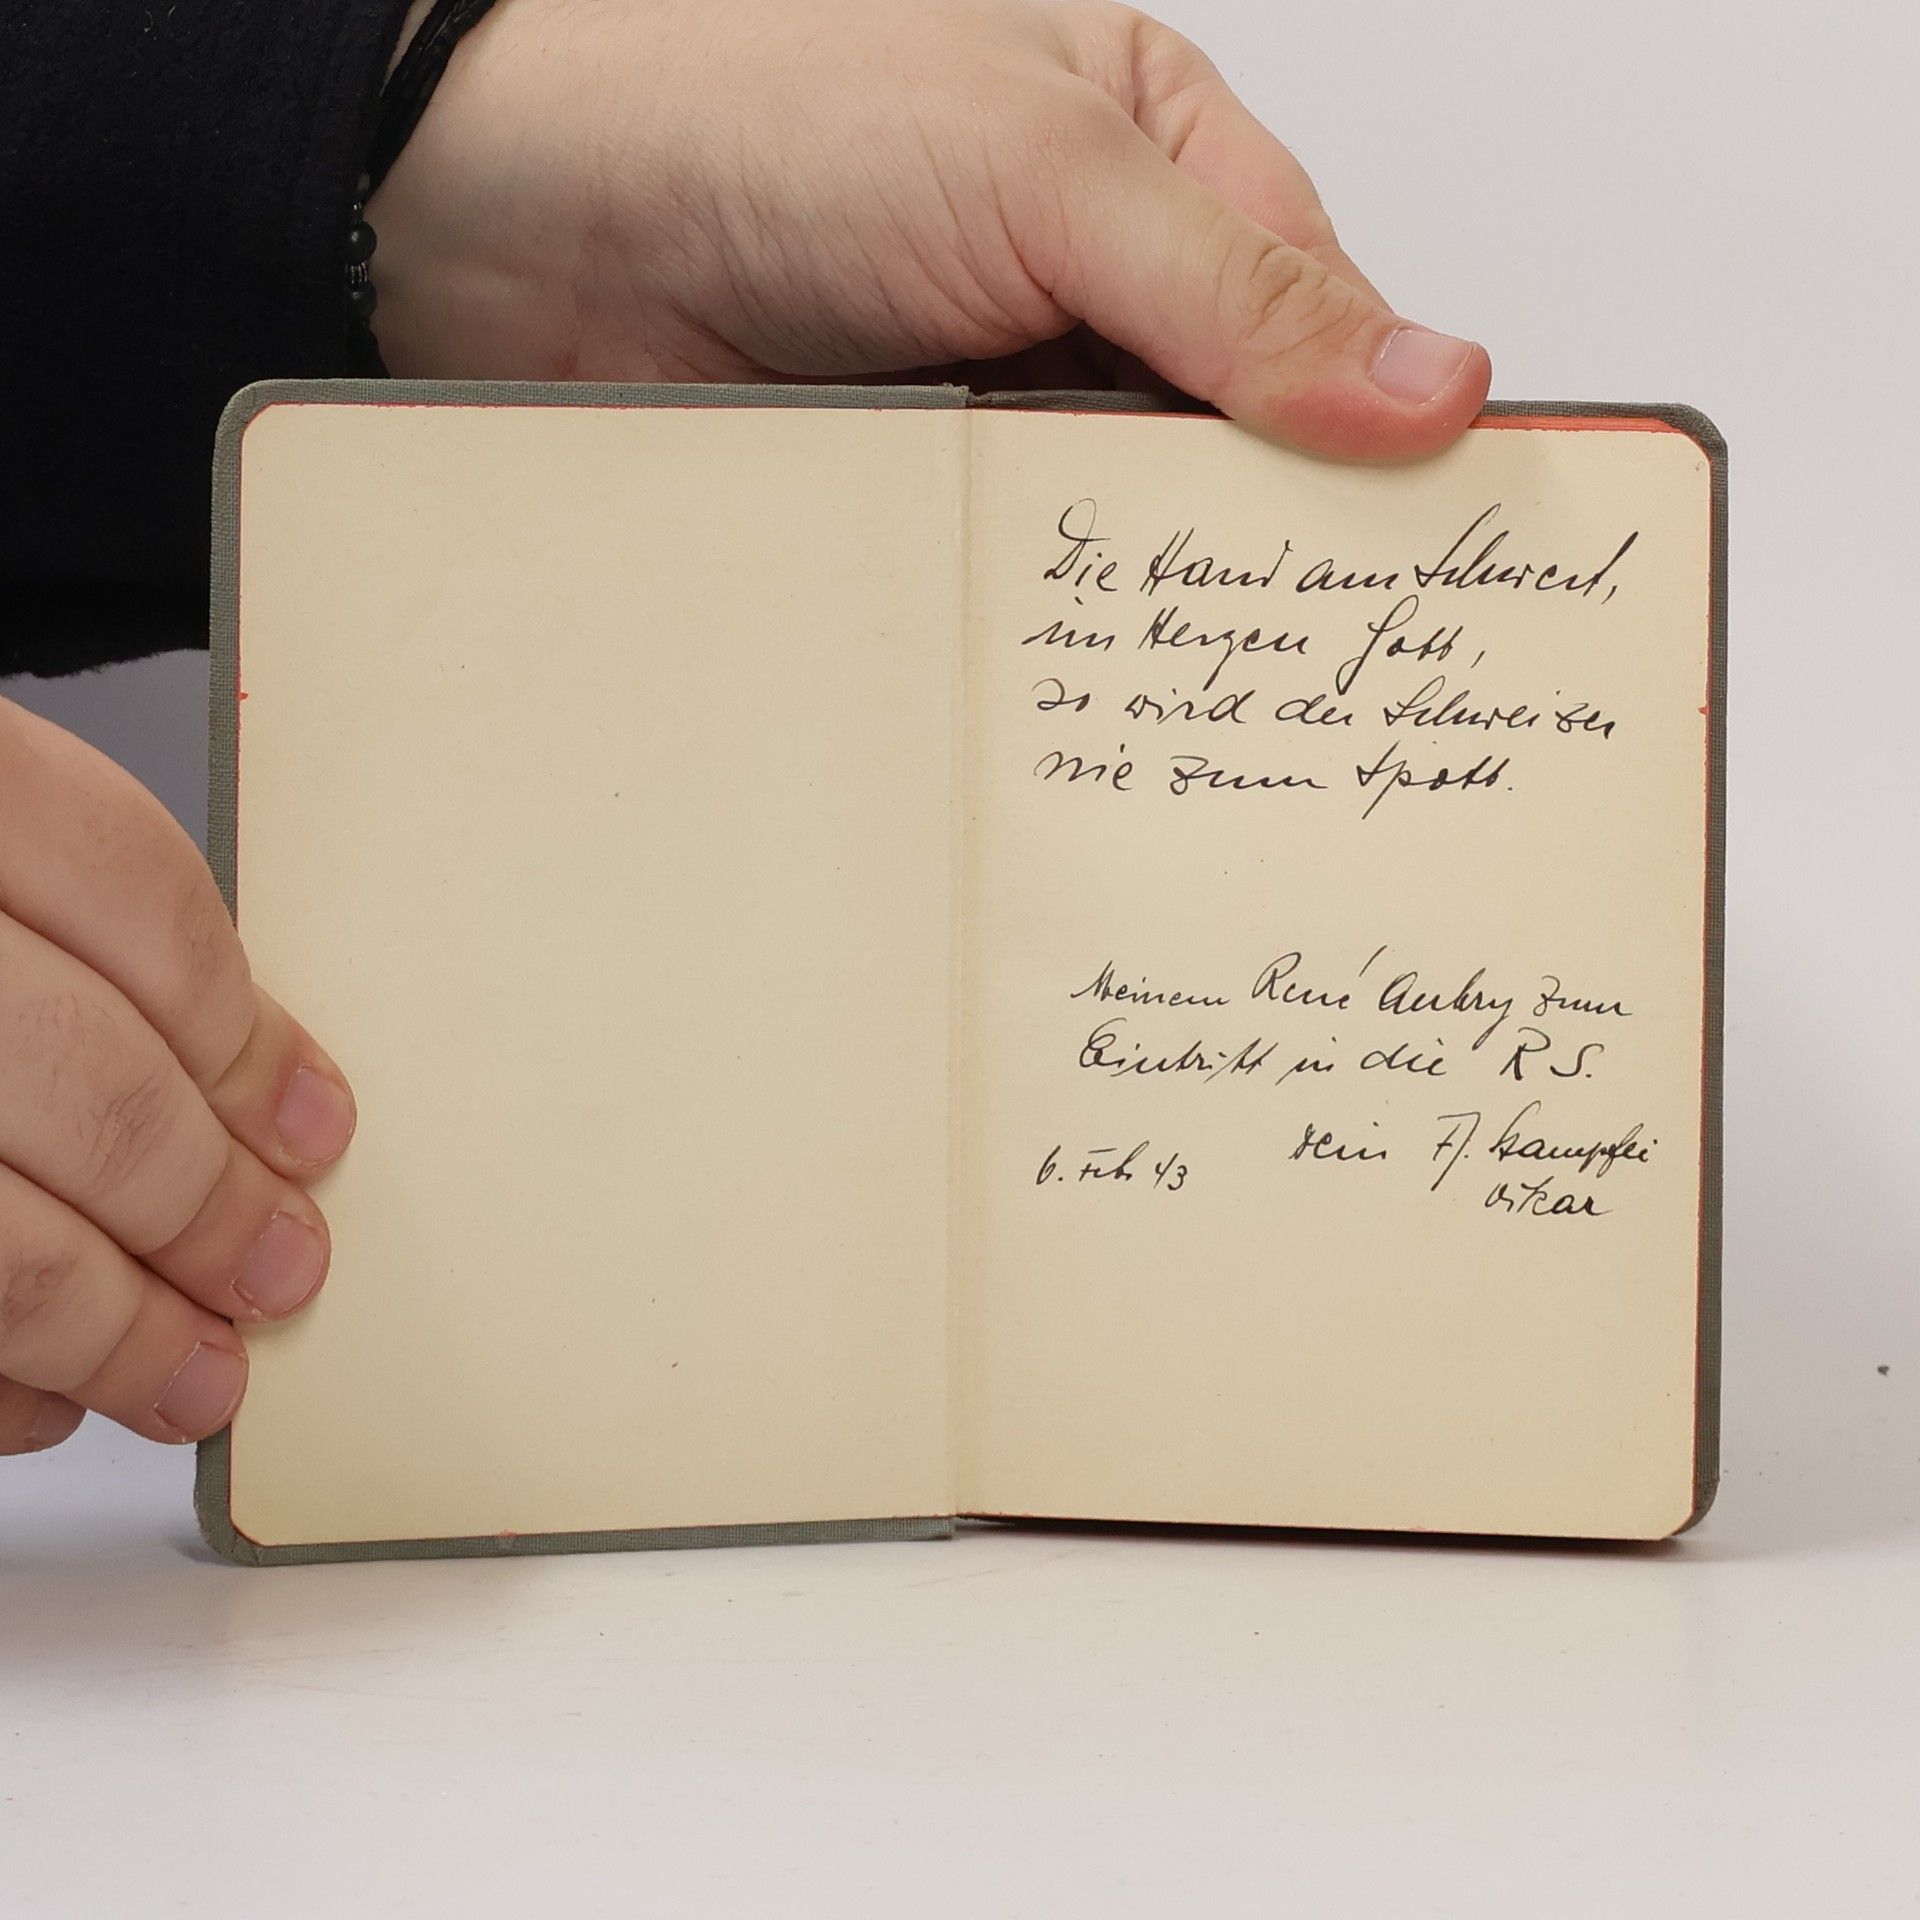 Die Hand am Schwert,
im Herzen Gott,
so wird der Schweizer
nie zum Spott.
Meinem René Aubry zum
Eintritt in die R S.
6. Feb. 43 Dein
Oskar